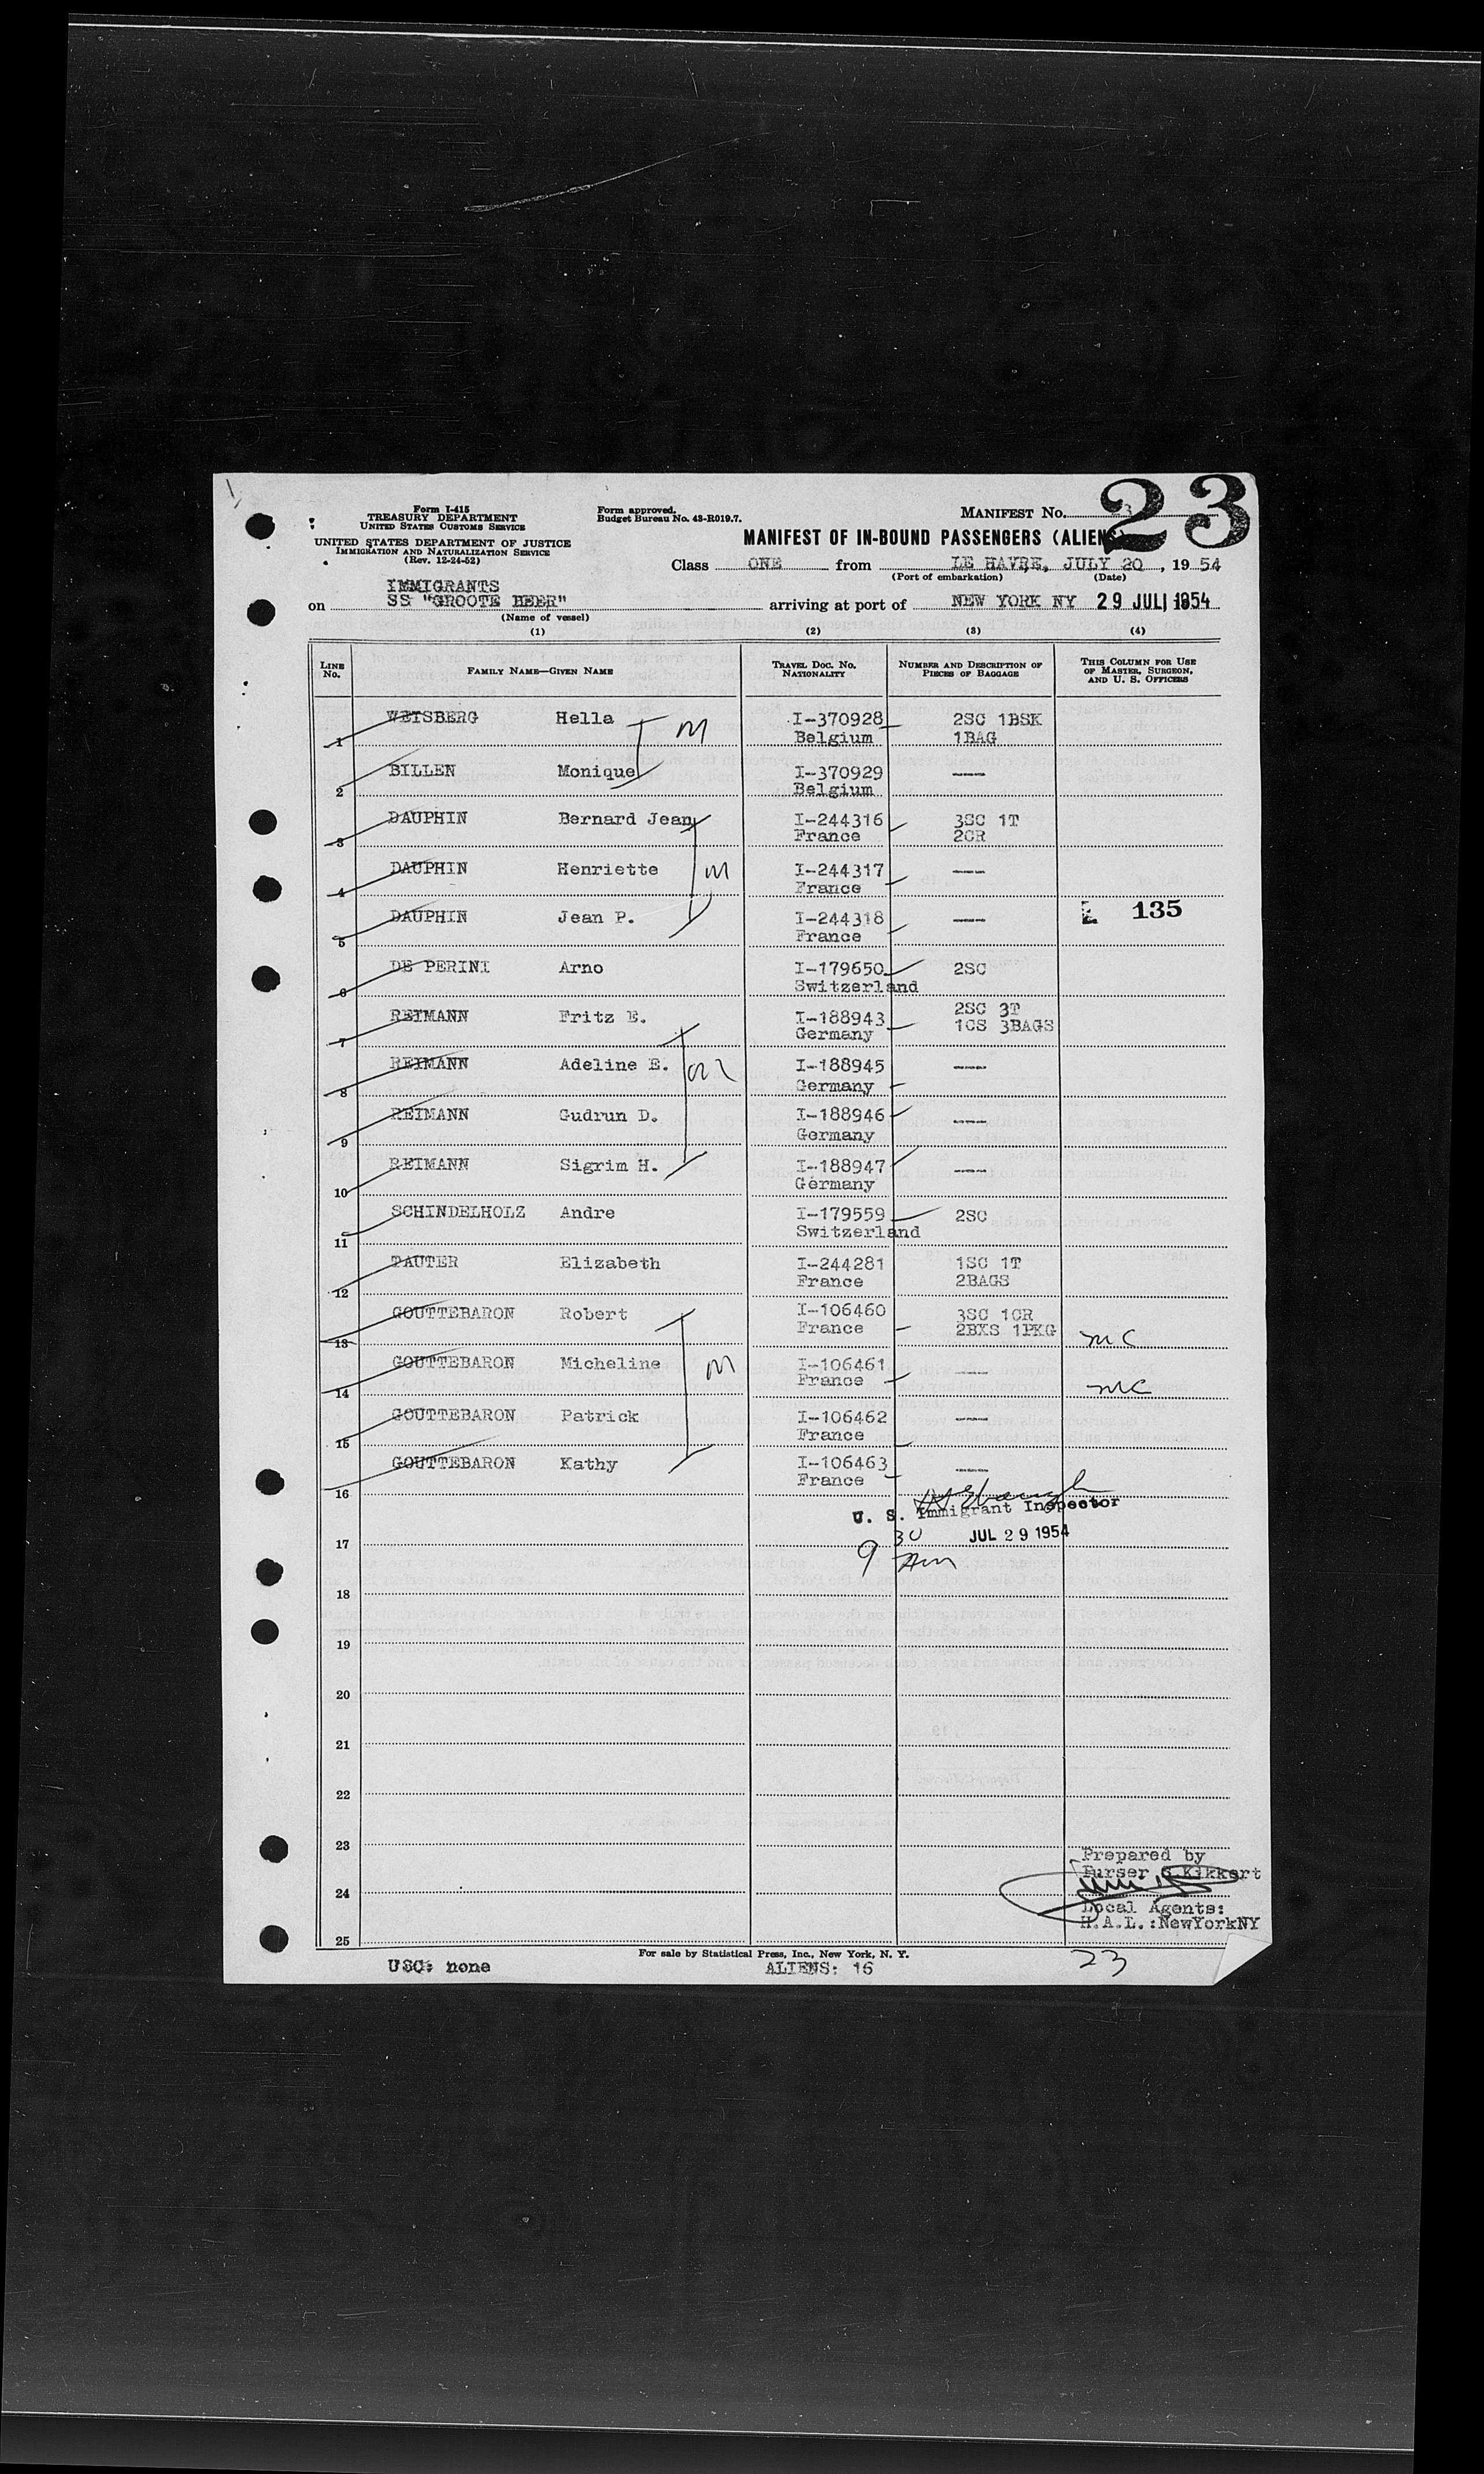 Form I-415
TREASURY DEPARTMENT
UNITED STATES CUSTOMS SERVICE
UNITED STATES DEPARTMENT OF JUSTICE
IMMIGRATION AND NATURALIZATION SERVICE
(Rev. 12-24-52)
Form approved.
Budget Bureau No. 43-R019.7.
MANIFEST No. 3
23
MANIFEST OF IN-BOUND PASSENGERS (ALIENS)
Class ONE from LE HAVRE, JULY 20, 1954
(Port of embarkation) (Date)
IMMIGRANTS
on SS "GROOTE BEER" arriving at port of NEW YORK NY 29 JULI 1954
(Name of vessel)
(1) (2) (3) (4)
LINE No. FAMILY NAME—GIVEN NAME TRAVEL DOC. No. NATIONALITY NUMBER AND DESCRIPTION OF PIECES OF BAGGAGE THIS COLUMN FOR USE OF MASTER, SURGEON, AND U. S. OFFICERS
1 WEISBERG Hella M I-370928 2SC 1BSK
Belgium 1BAG
2 BILLEN Monique I-370929 ----
Belgium
3 DAUPHIN Bernard Jean I-244316 3SC 1T
France 2CR
4 DAUPHIN Henriette M I-244317 ----
France
5 DAUPHIN Jean P. I-244318 ---- 135
France
6 DE PERINI Arno I-179650 2SC
Switzerland
7 REIMANN Fritz E. I-188943 2SC 3T
Germany 1CS 3BAGS
8 REIMANN Adeline E. M I-188945 ----
Germany
9 REIMANN Gudrun D. I-188946 ----
Germany
10 REIMANN Sigrim H. I-188947 ----
Germany
11 SCHINDELHOLZ Andre I-179559 2SC
Switzerland
12 TAUTER Elizabeth I-244281 1SC 1T
France 2BAGS
13 GOUTTEBARON Robert I-106460 3SC 1CR
France 2BXS 1PKG mc
14 GOUTTEBARON Micheline M I-106461 ----
France mc
15 GOUTTEBARON Patrick I-106462 ----
France
16 GOUTTEBARON Kathy I-106463 ----
France
U. S. Immigrant Inspector
17 9 30 Am JUL 29 1954
18
19
20
21
22
23
Prepared by
Purser G.Kikkert
24
Local Agents:
H.A.L.:NewYorkNY
25
For sale by Statistical Press, Inc., New York, N. Y.
USC: none ALIENS: 16 23